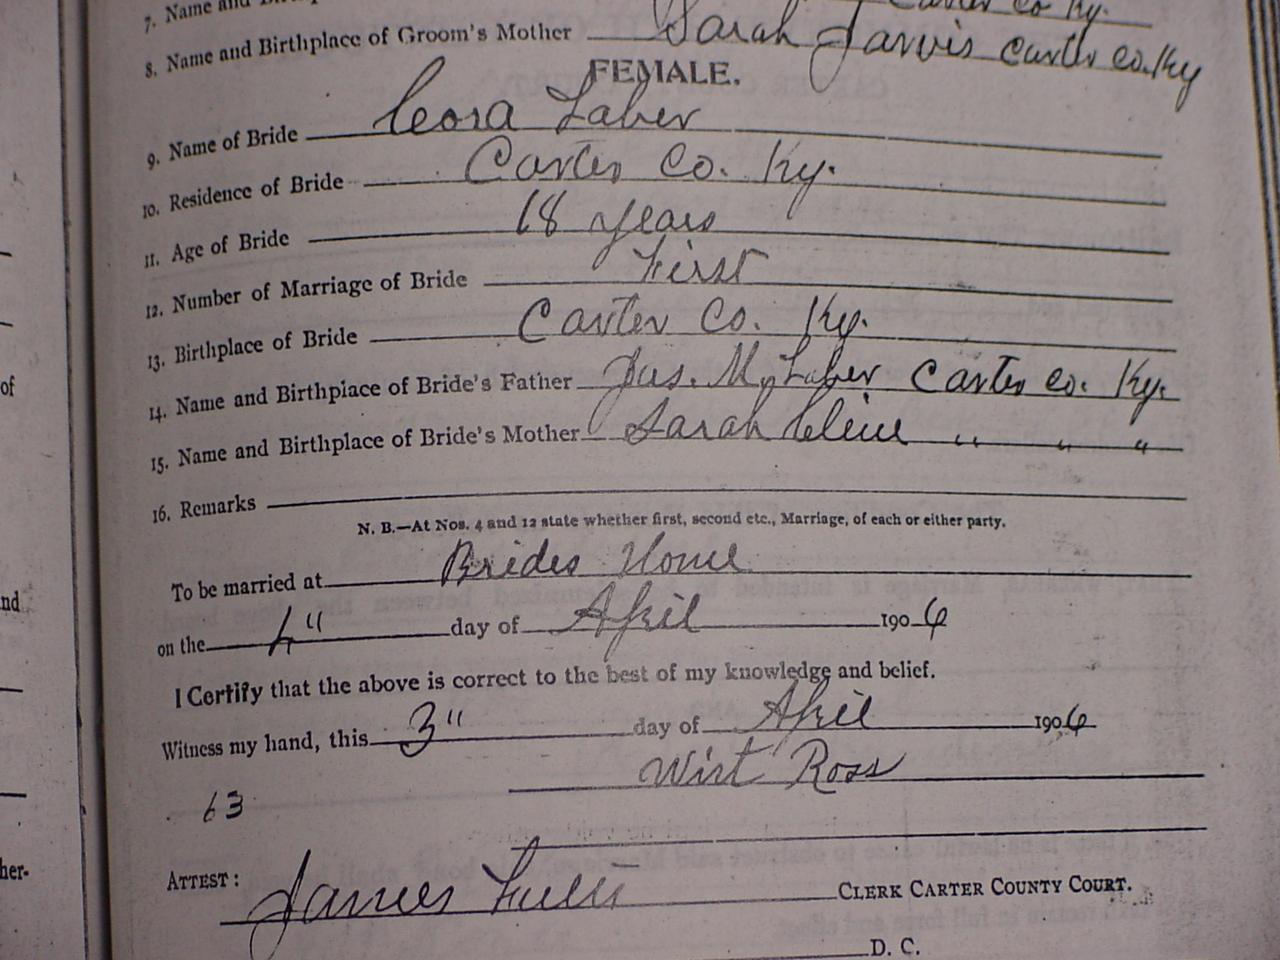 7. Name and Carter Co Ky.
8. Name and Birthplace of Groom's Mother Sarah Jarvis Carter Co. Ky
FEMALE.
9. Name of Bride Ceora Laber
10. Residence of Bride Carter Co. Ky.
11. Age of Bride 18 years
12. Number of Marriage of Bride First
13. Birthplace of Bride Carter Co. Ky.
14. Name and Birthplace of Bride's Father Jas. M. Laber Carter Co. Ky.
15. Name and Birthplace of Bride's Mother Sarah Cline " " "
16. Remarks
N. B.—At Nos. 4 and 12 state whether first, second etc., Marriage, of each or either party.
To be married at Brides Home
on the 4" day of April 1906
I Certify that the above is correct to the best of my knowledge and belief.
Witness my hand, this 3" day of April 1906
Wirt Ross
63
ATTEST: James CLERK CARTER COUNTY COURT.
D. C.